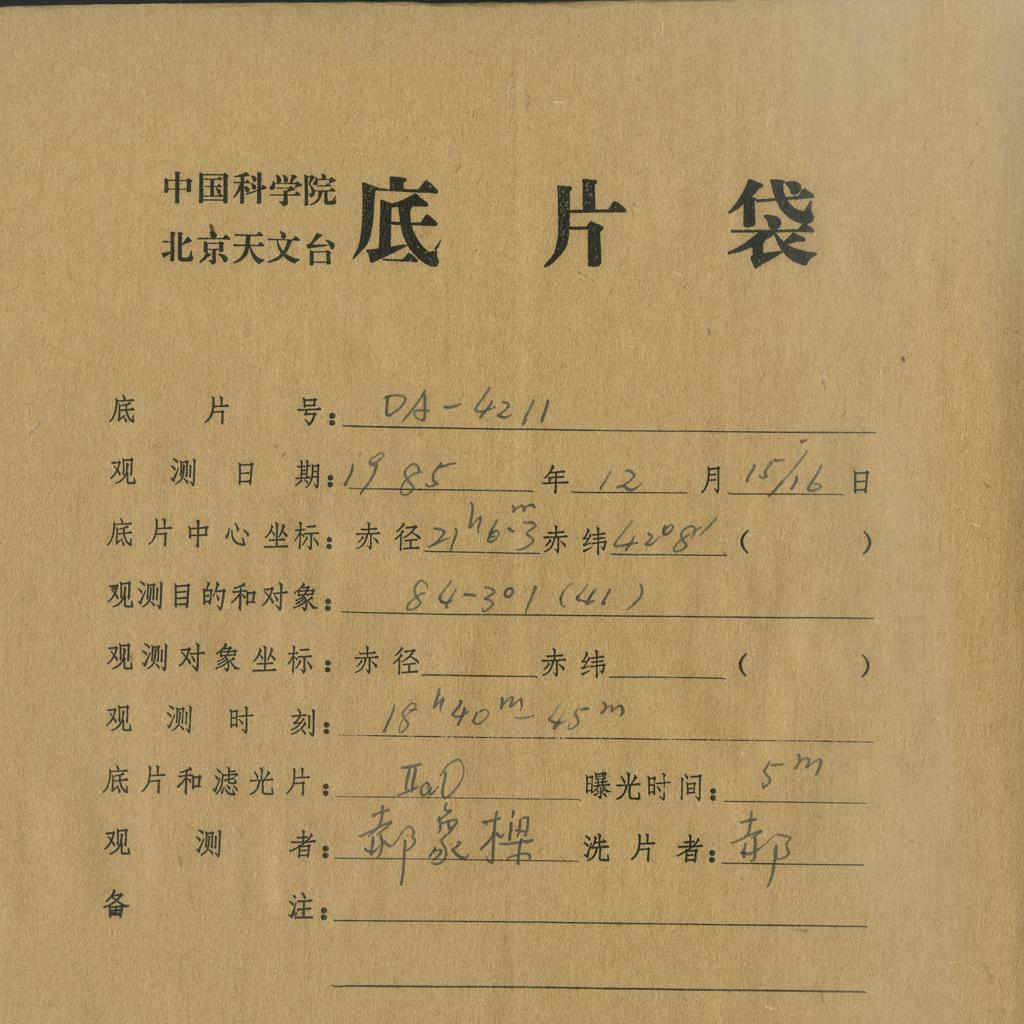 中国科学院
北京天文台
底片袋
底片号：DA-4211
观测日期：1985年12月15/16日
底片中心坐标：赤径21ʰ6ᵐ.3赤纬42°8′（ ）
观测目的和对象：84-301(41)
观测对象坐标：赤径 赤纬 （ ）
观测时刻：18ʰ40ᵐ-45ᵐ
底片和滤光片：IIaD 曝光时间：5ᵐ
观测者：郝象樑 洗片者：郝
备注：